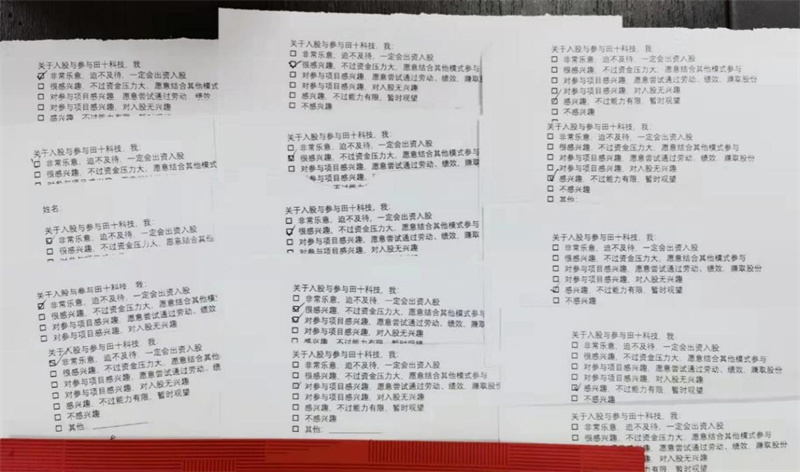 关于入股与参与田十科技，我：
非常乐意，迫不及待，一定会出资入股
很感兴趣，不过资金压力大，愿意结合其他
对参与项目感兴趣，愿意尝试通过劳动、绩效
对参与项目感兴趣，对入股无兴趣
感兴趣，不过能力有限，暂时观望
关于入股与参与田十科技，我：
非常乐意，迫不及待，一定会出资入股
很感兴趣，不过资金压力大，愿意结合其他模式
姓名：
关于入股与参与田十科技，我：
非常乐意，迫不及待，一定会出资入股
很感兴趣，不过资金压力大，愿意结合其他
关于入股与参与田十科技，我：
非常乐意，迫不及待，一定会出资入股
很感兴趣，不过资金压力大，愿意结合其他模
对参与项目感兴趣，愿意尝试通过劳动、绩
对参与项目感兴趣，对入股无兴趣
关于入股与参与田十科技，我：
非常乐意，迫不及待，一定会出资入股
很感兴趣，不过资金压力大，愿意结合其他
对参与项目感兴趣，愿意尝试通过劳动、绩
对参与项目感兴趣，对入股无兴趣
感兴趣，不过能力有限，暂时观望
不感兴趣
其他：
关于入股与参与田十科技，我：
非常乐意，迫不及待，一定会出资入股
很感兴趣，不过资金压力大，愿意结合其他模式参与
对参与项目感兴趣，愿意尝试通过劳动、绩效，赚取股份
对参与项目感兴趣，对入股无兴趣
感兴趣，不过能力有限，暂时观望
不感兴趣
关于入股与参与田十科技，我：
非常乐意，迫不及待，一定会出资入股
很感兴趣，不过资金压力大，愿意结合其他模式参与
对参与项目感兴趣，愿意尝试通过劳动、绩效，赚取
参与项目感兴趣，对入股无兴趣
关于入股与参与田十科技，我：
非常乐意，迫不及待，一定会出资入股
很感兴趣，不过资金压力大，愿意结合其他模式参与
对参与项目感兴趣，愿意尝试通过劳动、绩效，赚取
对参与项目感兴趣，对入股无兴趣
关于入股与参与田十科技，我：
非常乐意，迫不及待，一定会出资入股
很感兴趣，不过资金压力大，愿意结合其他模式参与
对参与项目感兴趣，愿意尝试通过劳动、绩效，赚取
对参与项目感兴趣，对入股无兴趣
关于入股与参与田十科技，我：
非常乐意，迫不及待，一定会出资入股
很感兴趣，不过资金压力大，愿意结合其他模式参与
对参与项目感兴趣，愿意尝试通过劳动、绩效，赚取股份
对参与项目感兴趣，对入股无兴趣
感兴趣，不过能力有限，暂时观望
不感兴趣
其他：
关于入股与参与田十科技，我：
非常乐意，迫不及待，一定会出资入股
很感兴趣，不过资金压力大，愿意结合其他模式参与
对参与项目感兴趣，愿意尝试通过劳动、绩效，赚取股份
对参与项目感兴趣，对入股无兴趣
感兴趣，不过能力有限，暂时观望
不感兴趣
关于入股与参与田十科技，我：
非常乐意，迫不及待，一定会出资入股
很感兴趣，不过资金压力大，愿意结合其他模式参与
对参与项目感兴趣，愿意尝试通过劳动、绩效，赚取股份
对参与项目感兴趣，对入股无兴趣
感兴趣，不过能力有限，暂时观望
不感兴趣
其他：
关于入股与参与田十科技，我：
非常乐意，迫不及待，一定会出资入股
很感兴趣，不过资金压力大，愿意结合其他模式参与
对参与项目感兴趣，愿意尝试通过劳动、绩效，赚取股份
对参与项目感兴趣，对入股无兴趣
感兴趣，不过能力有限，暂时观望
不感兴趣
关于入股与参与田十科技，我：
非常乐意，迫不及待，一定会出资入股
很感兴趣，不过资金压力大，愿意结合其他模式参与
对参与项目感兴趣，愿意尝试通过劳动、绩效，赚取股份
对参与项目感兴趣，对入股无兴趣
感兴趣，不过能力有限，暂时观望
不感兴趣
关于入股与参与田十科技，我：
非常乐意，迫不及待，一定会出资入股
很感兴趣，不过资金压力大，愿意结合其他模式参与
对参与项目感兴趣，愿意尝试通过劳动、绩效，赚取股份
对参与项目感兴趣，对入股无兴趣